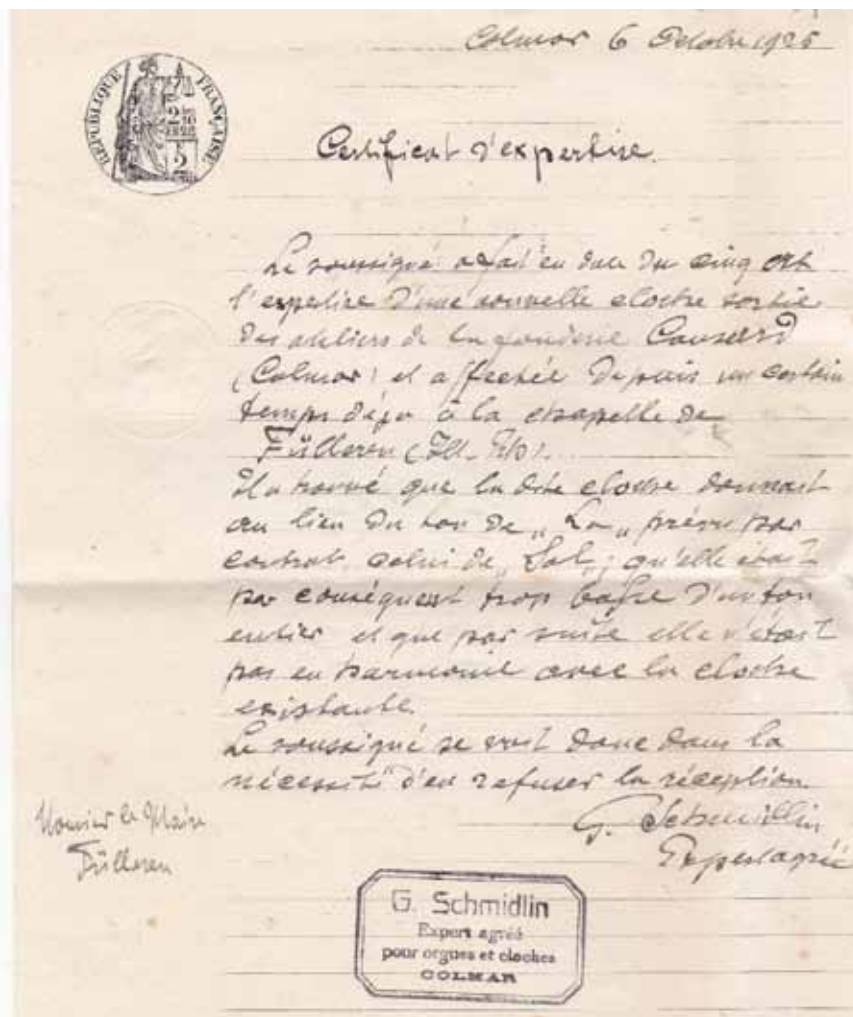 Colmar 6 Octobre 1925
RÉPUBLIQUE FRANÇAISE
Certificat d'expertise.
Le soussigné a fait en date du cinq crt
l'expertise d'une nouvelle cloche sortie
des ateliers de la fonderie Causard
(Colmar) et affectée depuis un certain
temps déjà à la chapelle de
Fülleren (Ht. Rh).
Il a trouvé que la dite cloche donnait
au lieu du ton de „La„ prévu par
contrat, celui de „Sol„; qu'elle était
par conséquent trop basse d'un ton
entier et que par suite elle n'était
pas en harmonie avec la cloche
existante.
Le soussigné se voit donc dans la
nécessité d'en refuser la réception.
G. Schmidlin
Expert agréé
Monsieur le Maire
Fülleren
G. Schmidlin
Expert agréé
pour orgues et cloches
COLMAR